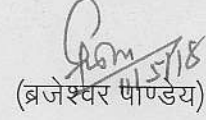 11/5/18
(ब्रजेश्वर पाण्डेय)